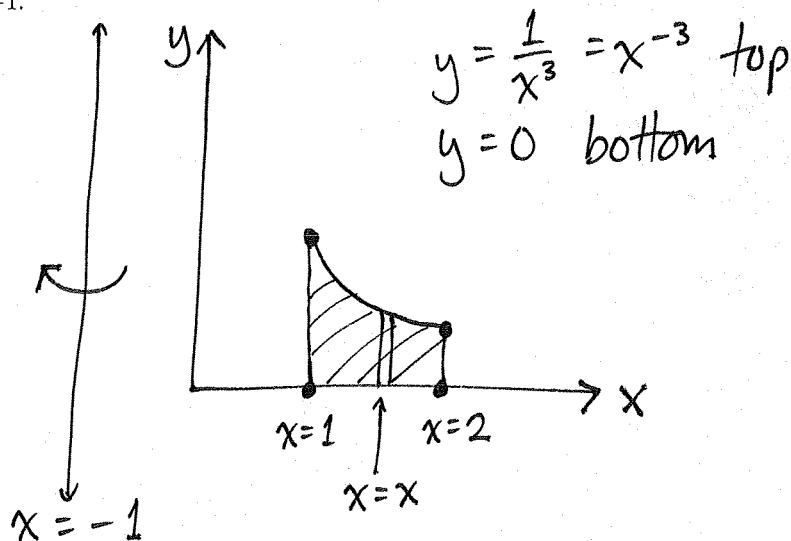 -1.
y
y = 1/x³ = x⁻³ top
y = 0 bottom
x
x=1
x=2
x=x
x = -1